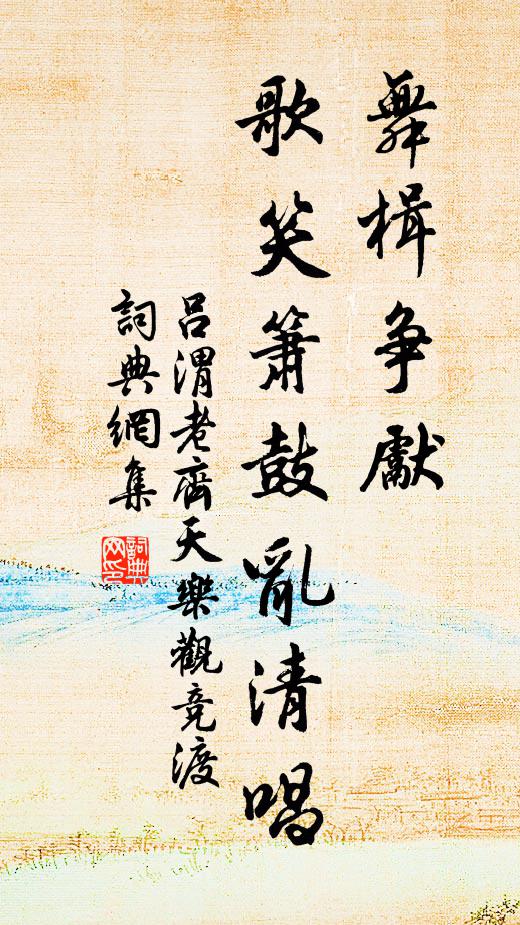 舞楫争獻
歌笑簫鼓亂清唱
呂渭老齊天樂觀竞渡
詞典網集
詞典網印